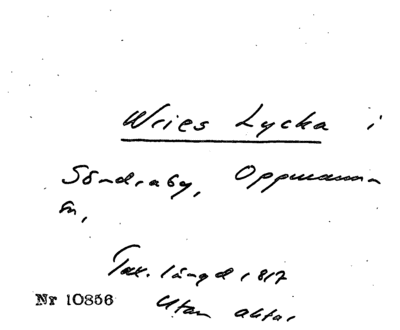 Wries Lycka i
Söndraby, Oppmanna
sn,
Tax. längd 1817
Utan aktnr
Nr 10856